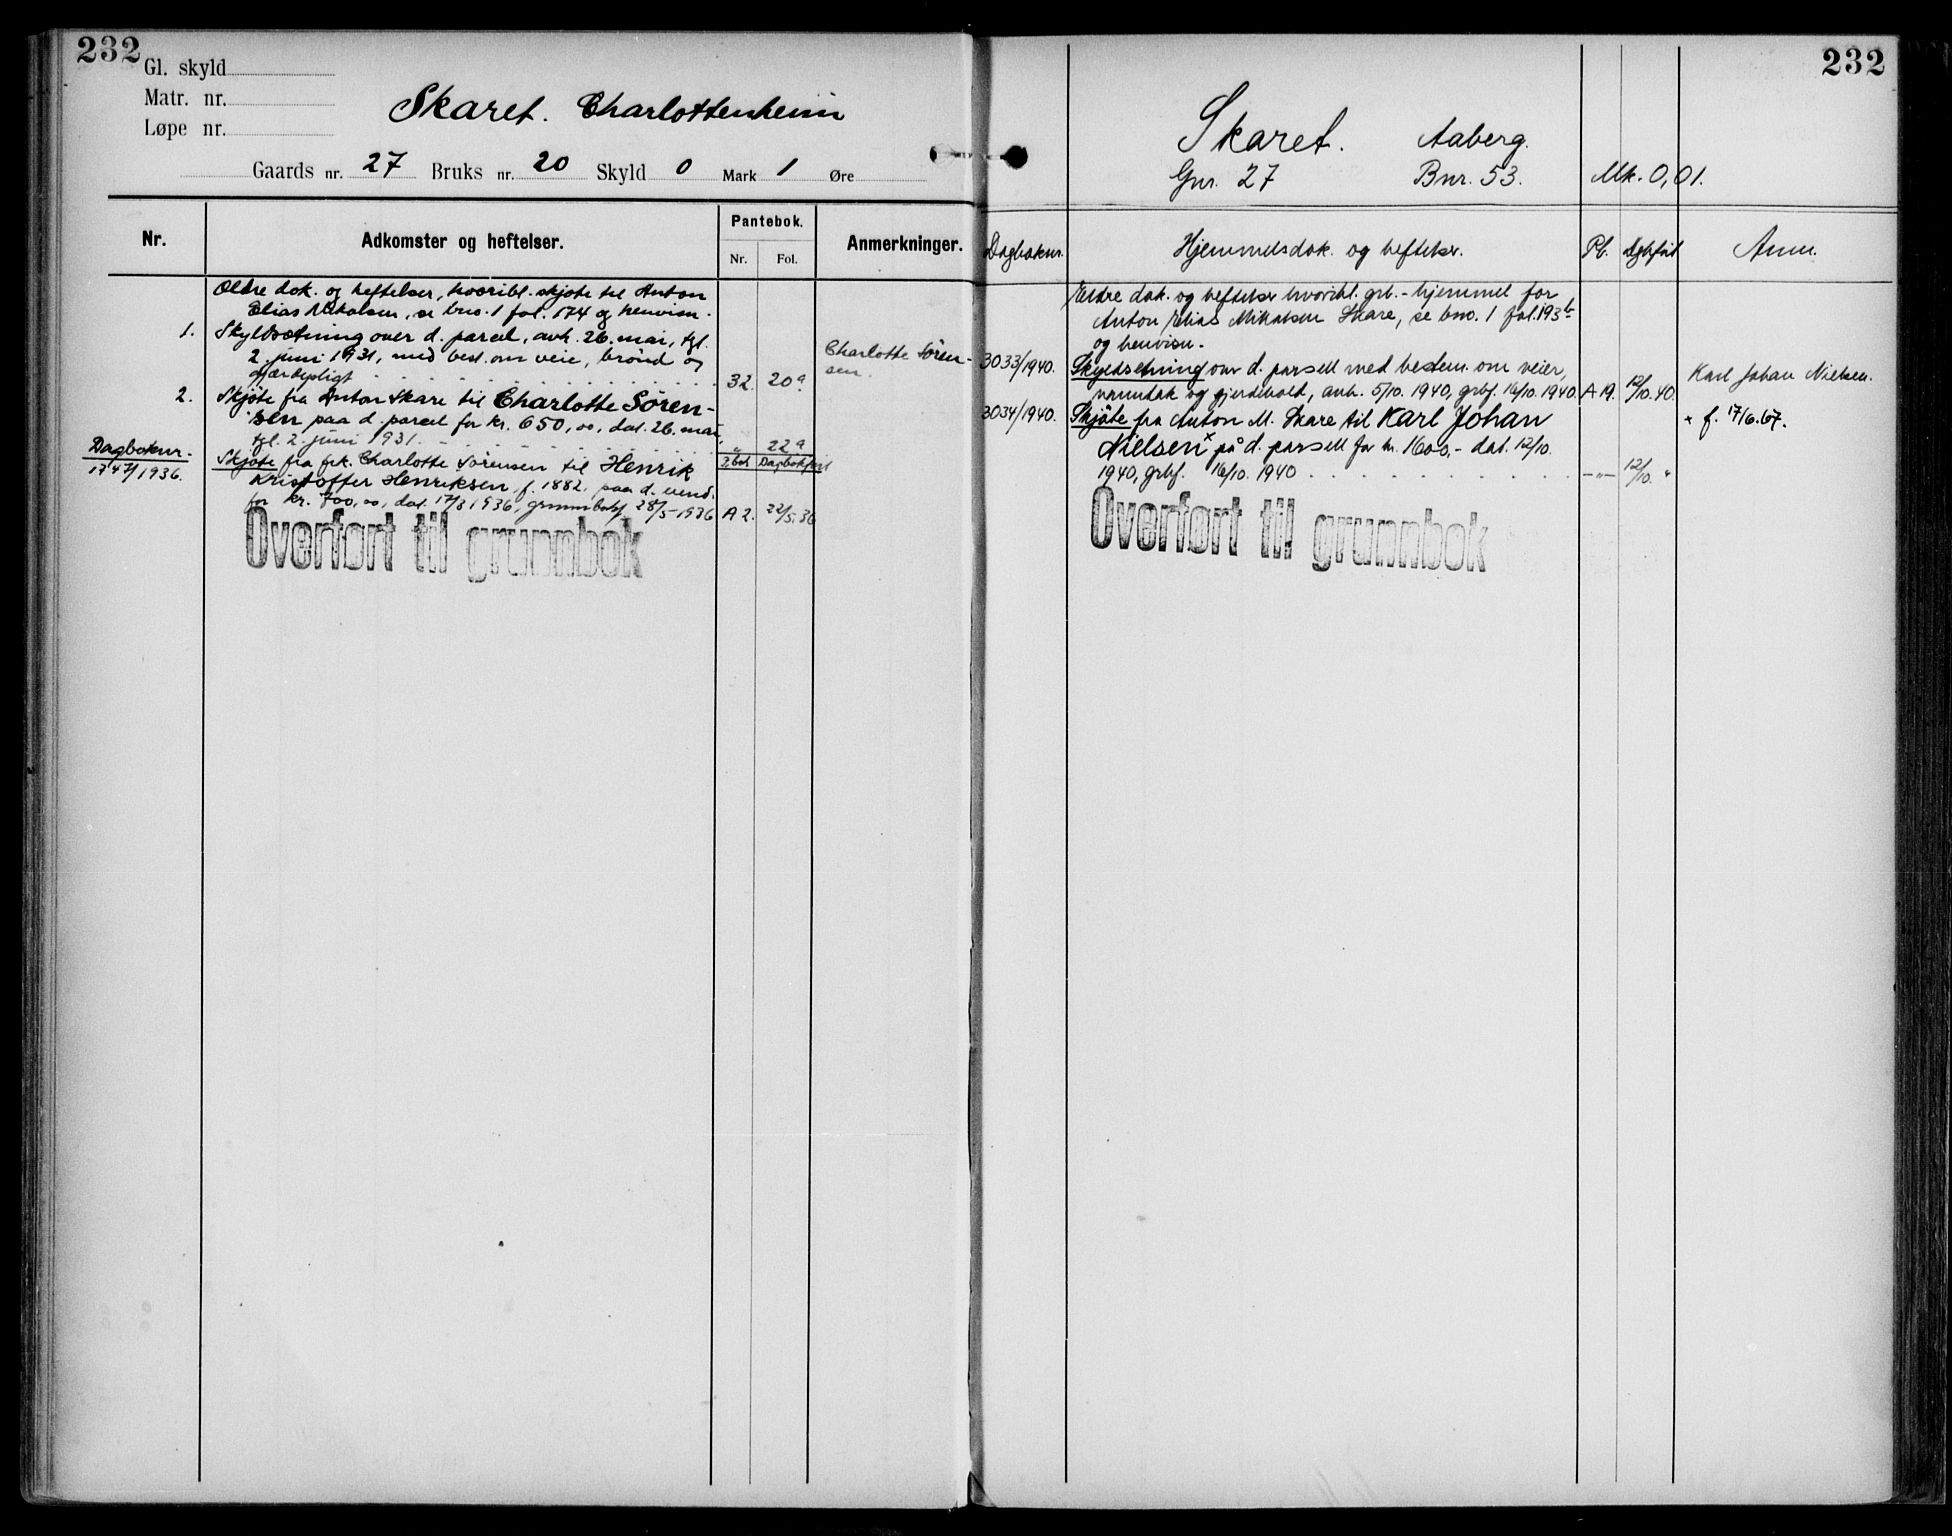 232
Gl. skyld
Matr. nr.
Løpe nr.
Skaret. Charlottenheim
Gaards nr. 27 Bruks nr. 20 Skyld 0 Mark 1 Øre
Nr. Adkomster og heftelser. Pantebok. Anmerkninger.
Nr. Fol.
Ældre dok. og heftelser, hvoribl. skjøte til Anton
Elias Mikalsen, se bno. 1 fol. 174 og henvisn.
1. Skyldsætning over d. parcel, avh. 26. mai, tgl.
2. juni 1931, med best. om veie, brønd og
gjærdepligt 32 20a
Charlotte Sören-
sen.
2. Skjöte fra Anton Skare til Charlotte Sören-
sen paa d. parcel for kr. 650,00, dat. 26. mai,
tgl. 2. juni 1931. " 22a
Dagboknr. P.bok Dagbokført
1747/1936. Skjöte fra frk. Charlotte Sörensen til Henrik
Kristoffer Henriksen, f. 1882. paa d. eiend.
for kr. 700,00, dat. 17/3 1936, grunnbokf. 28/5-1936 A 2. 22/5.36
Overført til grunnbok
232
Skaret. Aaberg.
Gnr. 27 Bnr. 53. Mk. 0,01.
Dagboknr. Hjemmelsdok. og heftelser. Pb. Dgbført Anm.
Eldre dok. og heftelser hvoribl. grb.-hjemmel for
Anton Elias Mikalsen Skare, se bno. 1 fol. 193b
og henvisn.
3033/1940. Skyldsetning over d. parsell med bestem. om veier,
vanntak og gjerdehold, avh. 5/10. 1940, grbf. 16/10. 1940. A 19. 12/10. 40.
Karl Johan Nielsen.
3034/1940. Skjöte fra Anton M. Skare til Karl Johan
x f. 17/6.67.
Nielsen x på d. parsell for kr. 1600,- dat. 12/10.
1940, grbf. 16/10. 1940 -"- 12/10. "
Overført til grunnbok